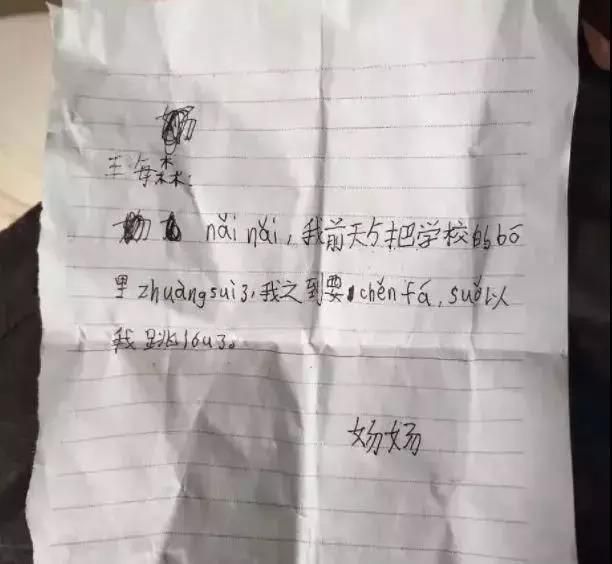 王每森:
nǎi nǎi,我前天与把学校的bō
里zhuàngsuì了,我之到要chěnfá,suǒ以
我跳lóu了。